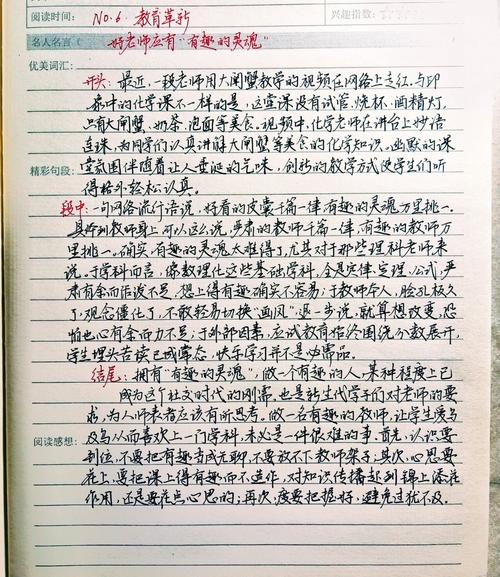 阅读时间: No.6. 教育革新 兴趣指数:
名人名言( 好老师应有“有趣的灵魂”
优美词汇:
开头: 最近,一段老师用大闸蟹教学的视频在网络上走红。与印
象中的化学课不一样的是,这堂课没有试管、烧杯、酒精灯,
只有大闸蟹、奶茶、泡面等美食。视频中,化学老师在讲台上妙语
连珠,为同学们认真讲解大闸蟹等美食的化学知识。幽默的课
精彩句段: 堂氛围伴随着让人垂涎的气味,创新的教学方式使学生们听
得格外轻松认真。
段中: 一句网络流行语说,好看的皮囊千篇一律,有趣的灵魂万里挑一。
具体到教师身上,可以这么说,严肃的教师千篇一律,有趣的教师万
里挑一。确实,有趣的灵魂太难得了,尤其对于那些理科老师来
说。于学科而言,像数理化这些基础学科,全是定律、定理、公式,严
肃有余而活泼不足,想上得有趣确实不容易;于教师本人,脸孔板久
了,观念僵化了,不敢轻易切换“画风”,退一步说,就算想改变,恐
怕也心有余而力不足;于外部因素,应试教育始终围绕分数展开,
学生埋头苦读已成常态,快乐学习并不是必需品。
结尾: 拥有“有趣的灵魂”,做一个有趣的人,某种程度上已
成为这个社交时代的刚需,也是新生代学子们对老师的要
求,为人师表者应该有所思考。做一名有趣的教师,让学生爱乌
阅读感想: 及乌从而喜欢上一门学科,未必是一件很难的事。首先,认识要
到位,不要把有趣当成无聊,不要放不下教师架子;其次,心思要
花上,要把课上得有趣而不造作,对知识传播起到锦上添花
作用,还是要花点心思的;再次,度要把握好,避免过犹不及。